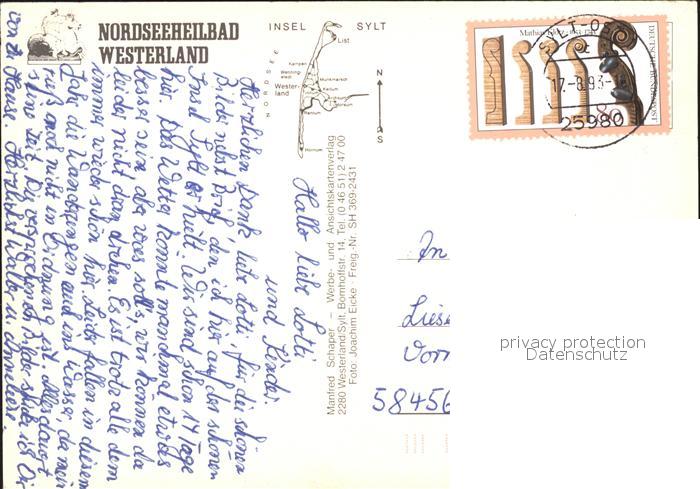 NORDSEEHEILBAD
WESTERLAND
INSEL SYLT
NORDSEE
List
Kampen
Wenning-
stedt
Munkmarsch
Wester-
land
Keitum
Morsum
Rantum
Hörnum
N
S
Mathias Klotz 1653-1743
DEUTSCHE BUNDESPOST
80
SYLT-OST
17.-8.93-
25980
Hallo liebe Lotti
und Kinder.
Herzlichen Dank, liebe Lotti, für die schönen
Bilder nebst Brief, den ich hier auf der schönen
Insel Sylt erhielt. Wir sind schon 14 Tage
hier. Das Wetter könnte manchmal etwas
besser sein aber was soll's, wir können da
leider nicht dran drehen. Es ist trotz alle dem
immer wieder schön hier. Leider fallen in diesem
Jahr die Wanderungen auch ins Wasser, da mein
noch nicht in Ordnung ist. Alles dauert
seine Zeit. Die versprochenen Bilder schicke ich Dir
von zu Hause. Herzliche Grüße
Manfred Schaper – Werbe- und Ansichtskartenverlag
2280 Westerland/Sylt, Bomhoffstr. 14, Tel. (0 46 51) 2 47 00
Foto: Joachim Eicke · Freig.-Nr. SH 369-2431
An
Liese
Vorm
58456
privacy protection
Datenschutz